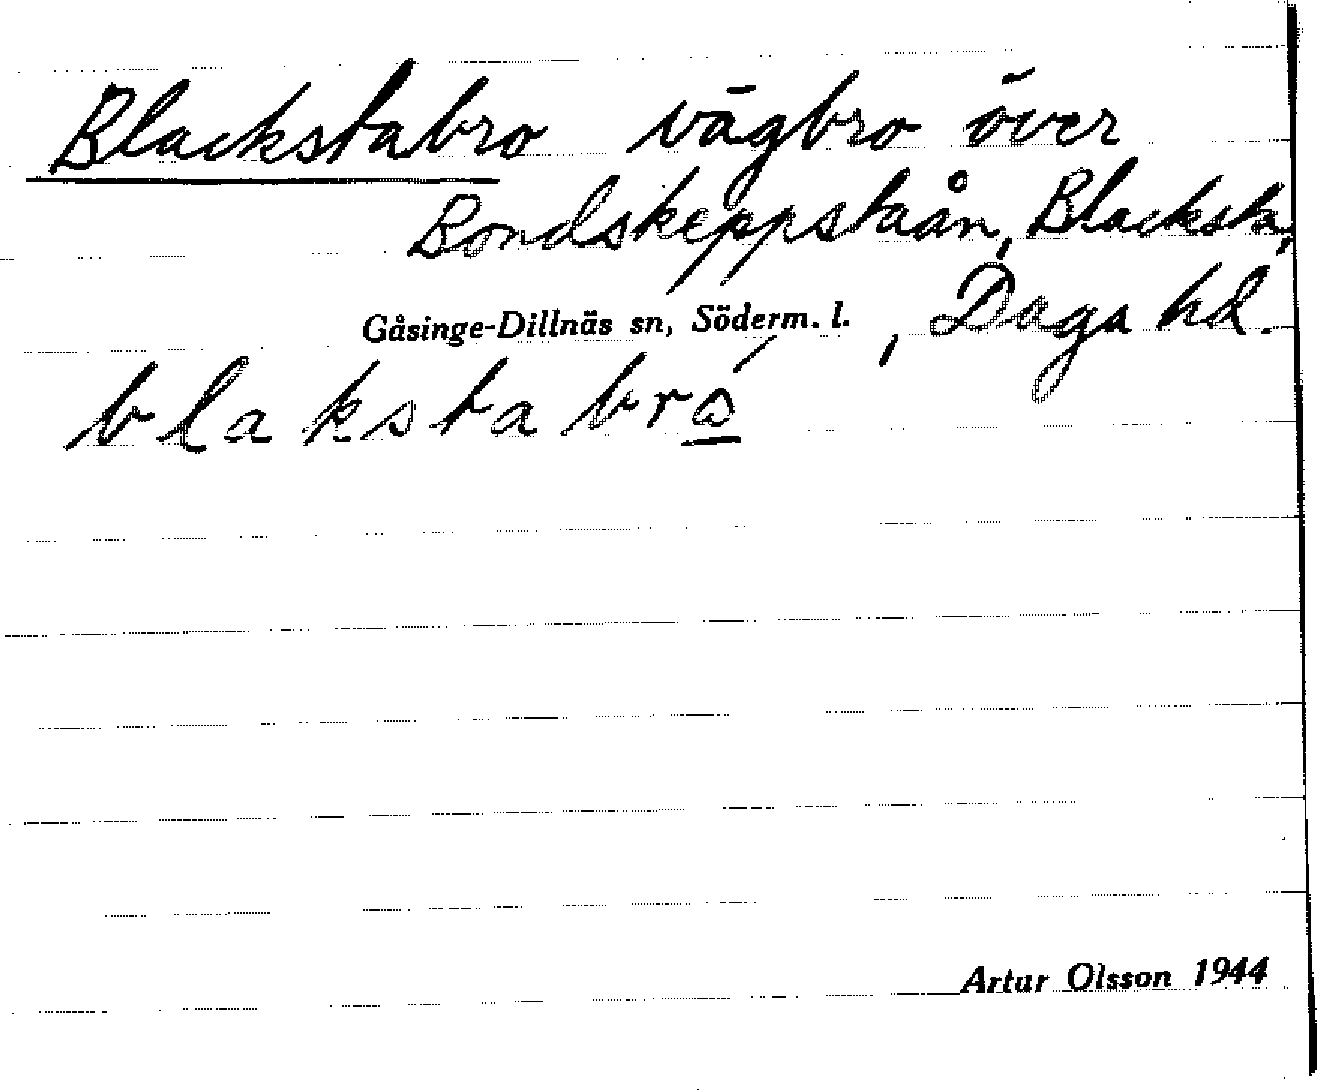 Blackstabro vägbro över
Bondskeppstaån, Blacksta,
Gåsinge-Dillnäs sn, Söderm. l. , Daga hd.
blakstabró
Artur Olsson 1944